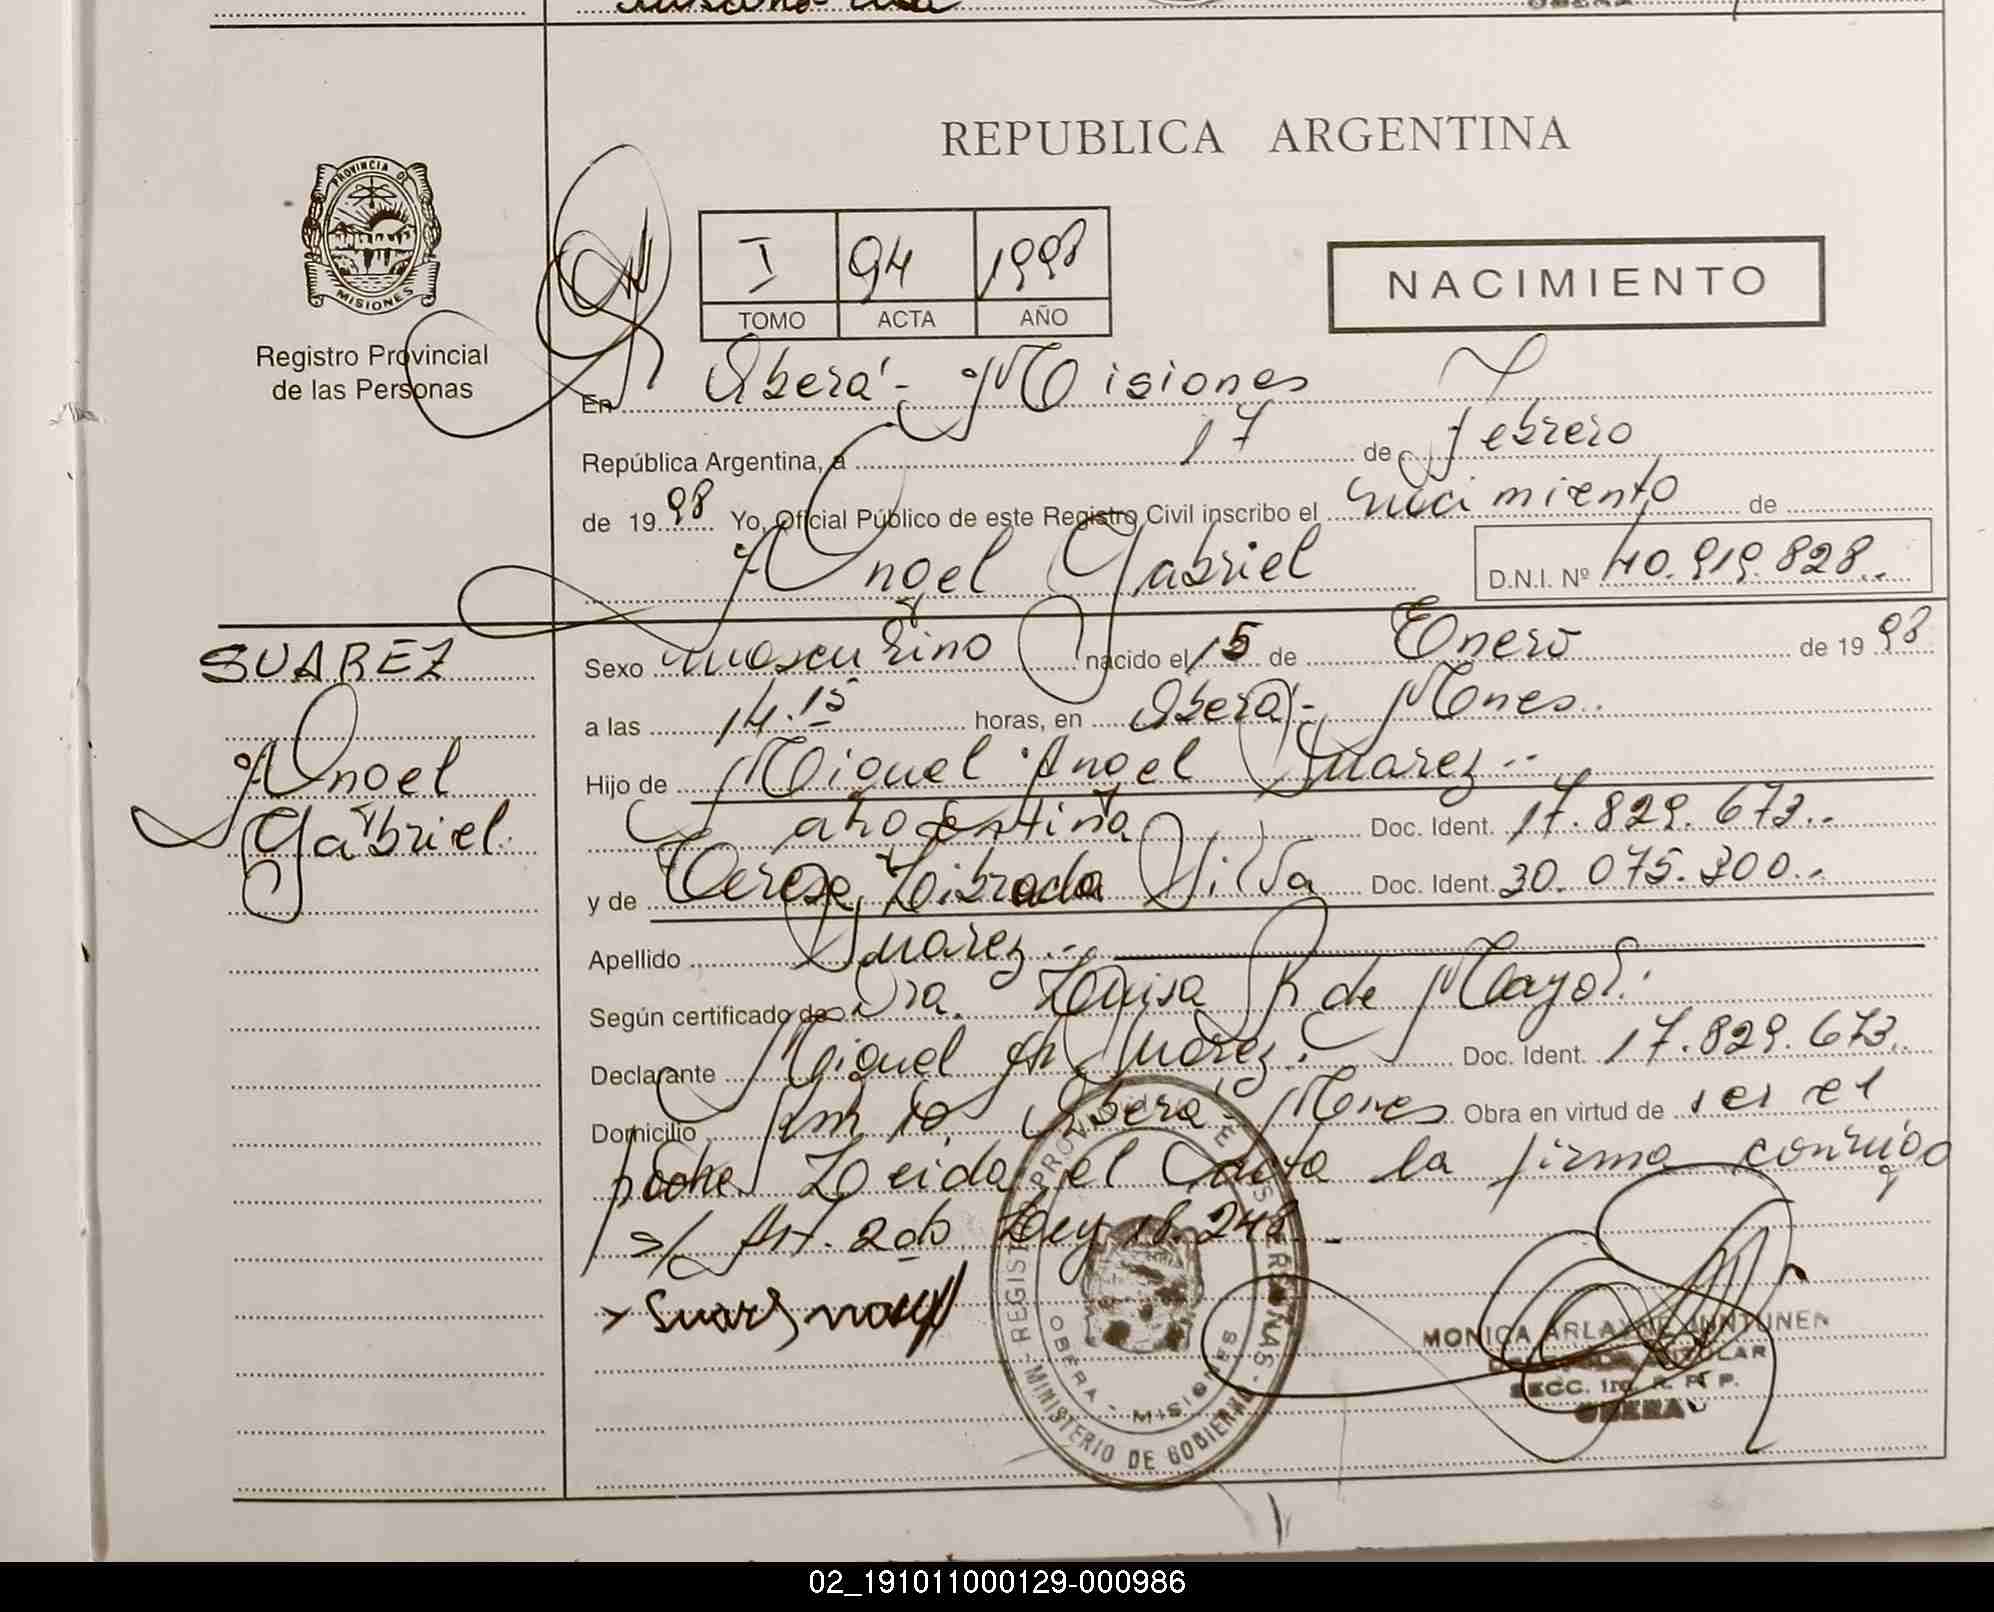 REPUBLICA ARGENTINA
PROVINCIA DE
MISIONES
Registro Provincial
de las Personas
I 94 1998
TOMO ACTA AÑO
NACIMIENTO
En Oberá - Misiones
República Argentina, a 17 de Febrero
de 19 98 Yo, Oficial Público de este Registro Civil inscribo el nacimiento de
Angel Gabriel D.N.I. Nº 40.919.828..
SUAREZ
Angel
Gabriel.
Sexo masculino nacido el 15 de Enero de 19 98
a las 14.15 horas, en Oberá - Mones.
Hijo de Miguel Angel Suarez..
argentina Doc. Ident. 17.829.673..
y de Teresa Librada Silva Doc. Ident. 30.075.300..
Apellido Suarez..
Según certificado de Dra. Luisa R de Mayol.
Declarante Miguel An Suarez. Doc. Ident. 17.829.673..
Domicilio Km 10, Oberá - Mones Obra en virtud de ser el
padre Leida el acta la firma conmigo
s/ Art. 2do Ley 18.248. -
REGISTRO PROVINCIAL DE LAS PERSONAS
MINISTERIO DE GOBIERNO
OBERA - MISIONES
MONICA ARLAYNE JUNTUNEN
TITULAR
SECC. 1ra. R. P. P.
OBERA
02_191011000129-000986